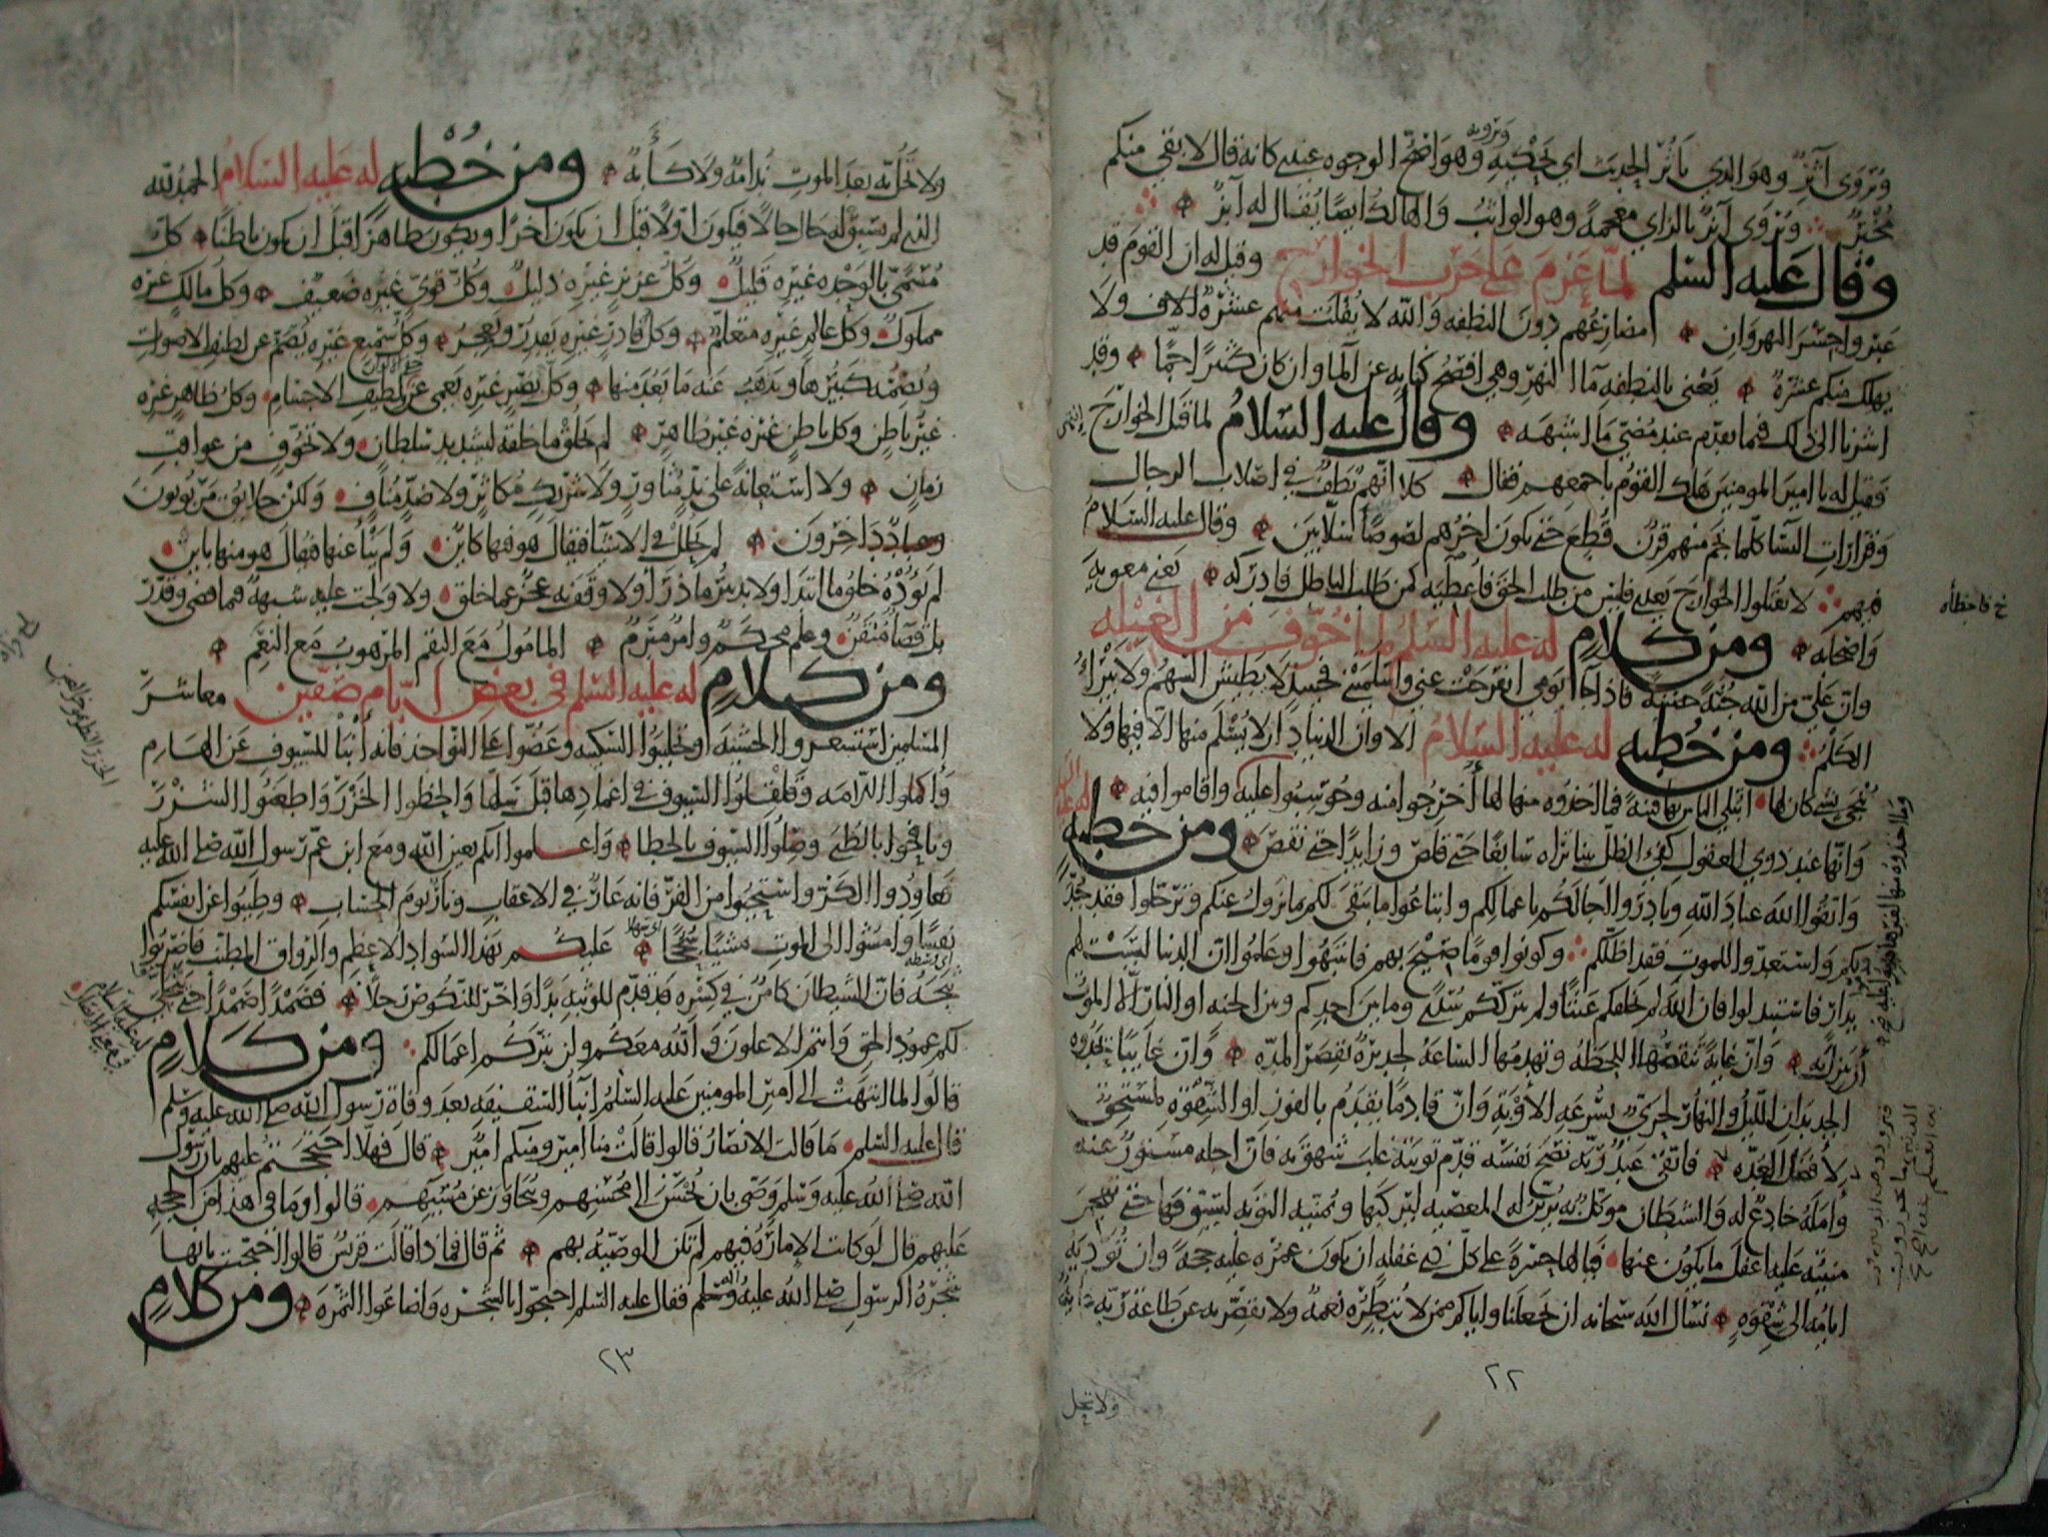 ويروى آثر وهو الذي يأثر الحديث اي يحكيه ويرويه وهو اصح الوجوه عندي كانه قال لا بقي منكم
مخبر ويروى آبز بالزاي معجمة وهو الواثب والهالك ايضا يقال له آبز
وقال عليه السلم لما عزم على حرب الخوارج وقيل له ان القوم قد
عبروا جسر النهروان مصارعهم دون النطفه والله لا يفلت منهم عشرة الاف ولا
يهلك منكم عشرة يعني بالنطفه ما النهر وهي افصح كناية عن الما وان كان كثيرا جما وقد
اشرنا الى ذلك فيما تقدم عند مضي ما اشبهه وقال عليه السلام لما قتل الخوارج
وقيل له يا امير المومنين هلك القوم باجمعهم فقال كلا انهم نطف في اصلاب الرجال
وقرارات النسا كلما نجم منهم قرن قطع حتى يكون اخرهم لصوصا سلابين وقال عليه السلام
فيهم لا تقتلوا الخوارج بعدي فليس من طلب الحق فاعطيه كمن طلب الباطل فادركه يعني معويه
واصحابه ومن كلام له عليه السلم لما خوف من الغيله
وان علي من الله جنة حصينة فاذا جا يومي انفرجت عني واسلمتني فحينئذ لا يطيش السهم ولا يبرأ
الكلم ومن خطبه له عليه السلام الا وان الدنيا دار لا يسلم منها الا فيها ولا
ينجى بشي كان لها ابتلي الناس بها فتنة فما اخذوه منها لها أخرجوا منه وحوسبوا عليه واقاموا فيه
وانها عند ذوي العقول كفيء الظل بينا تراه سابغا حتى قلص وزايدا حتى نقص ومن خطبه
واتقوا الله عباد الله وبادروا اجالكم باعمالكم وابتاعوا ما يبقى لكم بما يزول عنكم وترحلوا فقد جد
بكم واستعدوا للموت فقد اظلكم وكونوا قوما صيح بهم فانتبهوا وعلموا ان الدنيا ليست لهم
بدار فاستبدلوا فان الله لم يخلقكم عبثا ولم يترككم سدى وما بين احدكم وبين الجنه او النار الا الموت
أن ينزل به وان غاية تنقصها اللحظه وتهدمها الساعة لجديرة بقصر المده وان غايبا يحدوه
الجديدان الليل والنهار لحري بسرعه الاوبة وان قادما يقدم بالفوز او الشقوة لمستحق
لافضل العده فاتقى عبد ربه نصح نفسه قدم توبته غلب شهوته فان اجله مستور عنه
وأمله خادع له والشيطان موكل به يزين له المعصيه ليركبها ويمنيه التوبه ليسوفها حتى تهجم
منيته عليه اغفل ما يكون عنها فيا لها حسرة على كل ذي غفله ان يكون عمره عليه حجة وان تؤديه
ايامه الى شقوة نسال الله سبحانه ان يجعلنا واياكم ممن لا تبطره نعمة ولا تقصر به عن طاعة ربه غاية
٢٢
ولا تحل
خ فاخطأه
ولا تحل به بعد الموت ندامة ولا كأبة ومن خطبه له عليه السلام الحمد لله
الذي لم تسبق له حال حالا فيكون اولا قبل ان يكون اخرا ويكون ظاهرا قبل ان يكون باطنا كل
مسمى بالوحده غيره قليل وكل عزيز غيره ذليل وكل قوي غيره ضعيف وكل مالك غيره
مملوك وكل عالم غيره متعلم وكل قادر غيره يقدر ويعجز وكل سميع غيره يصم عن لطيف الاصوات
ويصمه كبيرها ويذهب عنه ما بعد منها وكل بصير غيره يعمى عن لطيف الاجسام وكل ظاهر غيره
غير باطن وكل باطن غيره غير ظاهر لم يخلق ما خلقه لتشديد سلطان ولا تخوف من عواقب
زمان ولا استعانة على ند مثاور ولا شريك مكاثر ولا ضد مناف ولكن خلايق مربوبون
وعباد داخرون لم يحلل في الاشيا فيقال هو فيها كاين ولم ينأ عنها فيقال هو منها باين
لم يؤده خلق ما ابتدا ولا تدبير ما ذرا ولا وقف به عجز عما خلق ولا ولجت عليه شبهة فيما قضى وقدر
بل قضآ متقن وعلم محكم وامر مبرم المامول مع النقم المرهوب مع النعم
ومن كلام له عليه السلم في بعض ايام صفين معاشر
المسلمين استشعروا الخشية وتجلببوا السكينه وعضوا على النواجذ فانه أنبأ للسيوف عن الهام
واكملوا اللامه وقلقلوا السيوف في اغمادها قبل سلها والحظوا الخزر واطعنوا الشزر
ونافحوا بالظبى وصلوا السيوف بالخطا واعلموا انكم بعين الله ومع ابن عم رسول الله صلى الله عليه
فعاودوا الكر واستحيوا من الفر فانه عار في الاعقاب ونار يوم الحساب وطيبوا عن انفسكم
نفسا وامشوا الى الموت مشيا سجحا عليكم بهذا السواد الاعظم والرواق المطنب فاضربوا
ثبجه فان الشيطان كامن في كسره قد قدم للوثبه يدا واخر للنكوص رجلا فصمدا صمدا حتى ينجلي
لكم عمود الحق وانتم الاعلون والله معكم ولن يتركم اعمالكم ومن كلام
قالوا لما انتهت الى امير المومنين عليه السلم انبا السقيفه بعد وفاة رسول الله صلى الله عليه وسلم
قال عليه السلم ما قالت الانصار قالوا قالت منا امير ومنكم امير قال فهلا احتججتم عليهم بان رسول
الله صلى الله عليه وسلم وصى بان يحسن الى محسنهم ويتجاوز عن مسيئهم قالوا وما في هذا من الحجه
عليهم قال لو كانت الامارة فيهم لم تكن الوصية بهم ثم قال فماذا قالت قريش قالوا احتجت بانها
شجرة الرسول صلى الله عليه وسلم فقال عليه السلم احتجوا بالشجره واضاعوا الثمره ومن كلام
٢٣